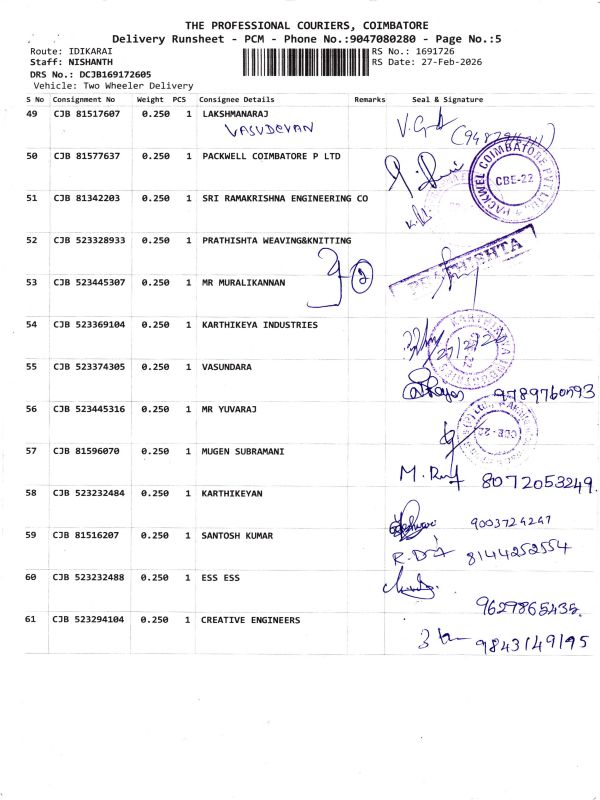 THE PROFESSIONAL COURIERS, COIMBATORE
Delivery Runsheet - PCM - Phone No.:9047080280 - Page No.:5
Route: IDIKARAI RS No.: 1691726
Staff: NISHANTH RS Date: 27-Feb-2026
DRS No.: DCJB169172605
Vehicle: Two Wheeler Delivery
S No Consignment No Weight PCS Consignee Details Remarks Seal & Signature
49 CJB 81517607 0.250 1 LAKSHMANARAJ
VASUDEVAN
50 CJB 81577637 0.250 1 PACKWELL COIMBATORE P LTD
PACKWEL COIMBATORE PVT LTD
CBE-22
51 CJB 81342203 0.250 1 SRI RAMAKRISHNA ENGINEERING CO
52 CJB 523328933 0.250 1 PRATHISHTA WEAVING&KNITTING
53 CJB 523445307 0.250 1 MR MURALIKANNAN
2
54 CJB 523369104 0.250 1 KARTHIKEYA INDUSTRIES
27/2/26
55 CJB 523374305 0.250 1 VASUNDARA
9789760593
56 CJB 523445316 0.250 1 MR YUVARAJ
CBE-22
57 CJB 81596070 0.250 1 MUGEN SUBRAMANI
8072053249
58 CJB 523232484 0.250 1 KARTHIKEYAN
9003724247
59 CJB 81516207 0.250 1 SANTOSH KUMAR
8144252554
60 CJB 523232488 0.250 1 ESS ESS
9629865435
61 CJB 523294104 0.250 1 CREATIVE ENGINEERS
9843149195